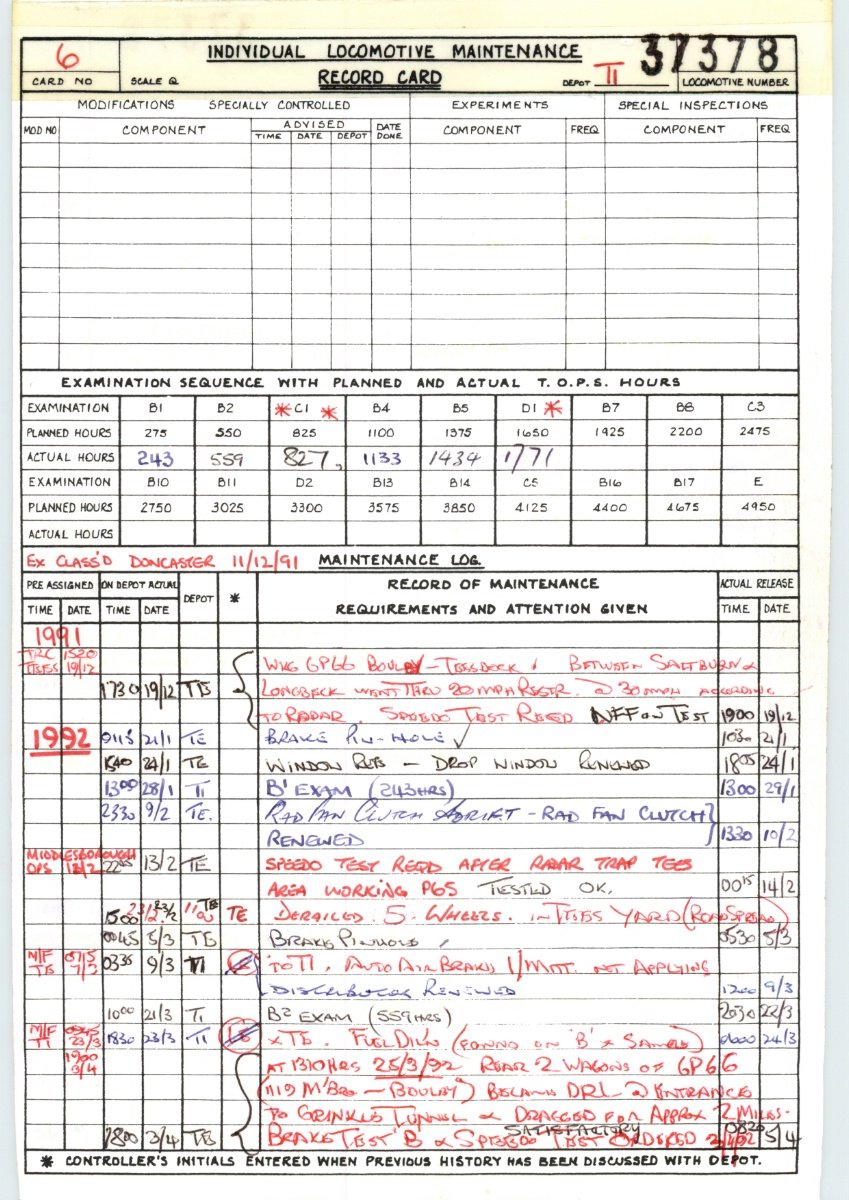 6 INDIVIDUAL LOCOMOTIVE MAINTENANCE 37378
CARD NO SCALE Q RECORD CARD DEPOT TI LOCOMOTIVE NUMBER
MODIFICATIONS SPECIALLY CONTROLLED EXPERIMENTS SPECIAL INSPECTIONS
MOD NO COMPONENT ADVISED DATE DONE COMPONENT FREQ COMPONENT FREQ
TIME DATE DEPOT
EXAMINATION SEQUENCE WITH PLANNED AND ACTUAL T.O.P.S. HOURS
EXAMINATION B1 B2 *C1* B4 B5 D1* B7 B8 C3
PLANNED HOURS 275 550 825 1100 1375 1650 1925 2200 2475
ACTUAL HOURS 243 559 827, 1133 1434 1771
EXAMINATION B10 B11 D2 B13 B14 C5 B16 B17 E
PLANNED HOURS 2750 3025 3300 3575 3850 4125 4400 4675 4950
ACTUAL HOURS
EX CLASS'D DONCASTER 11/12/91 MAINTENANCE LOG.
PRE ASSIGNED ON DEPOT ACTUAL DEPOT * RECORD OF MAINTENANCE ACTUAL RELEASE
TIME DATE TIME DATE REQUIREMENTS AND ATTENTION GIVEN TIME DATE
1991
TRC 1520
19/12 WKG 6P66 BOULBY - TEESDOCK. BETWEEN SALTBURN &
1730 19/12 TE LONGBECK WENT THRU 20MPH RESTR. @ 30MPH ACCORDING
TO RADAR. SPEEDO TEST REQED NFF ON TEST 1900 19/12
1992 0115 21/1 TE BRAKE PIN-HOLE ✓ 1030 21/1
1340 24/1 TE WINDOW REPS - DROP WINDOW RENEWED 1805 24/1
1300 28/1 TI B' EXAM (243HRS) 1300 29/1
2330 9/2 TE. RAD FAN CLUTCH ADRIFT - RAD FAN CLUTCH
RENEWED 1330 10/2
MIDDLESBOROUGH
OPS 13/2 13/2 TE SPEEDO TEST REQD AFTER RADAR TRAP TEES
AREA WORKING P65 TESTED OK. 0015 14/2
1500 TE DERAILED 5 WHEELS. IN TEES YARD (ROAD SPREAD)
0045 5/3 TE BRAKE PINHOLE 0530 5/3
M/F 0715
TE 7/3 0335 9/3 TI TO TI. AUTO AIR BRAKES I/MITT. NOT APPLYING
DISTRIBUTOR RENEWED 1200 9/3
1000 21/3 TI B2 EXAM (559HRS) 2030 22/3
M/F 0945
TI 23/3 1830 23/3 TI X TE. FUEL DIL'N (FOUND ON 'B' X SAMPLE) 24/3
1900
3/4 AT 1310HRS 25/3/92 REAR 2 WAGONS OF 6P66
(1119 M'BRO - BOULBY) BECAME DRL @ ENTRANCE
TO GRINKLE TUNNEL & DRAGGED FOR APPROX 2 MILES.
SATISFACTORY
1800 3/4 TE BRAKE TEST 'B' & SPEEDO TEST ORDERED 0820 5/4
* CONTROLLER'S INITIALS ENTERED WHEN PREVIOUS HISTORY HAS BEEN DISCUSSED WITH DEPOT.